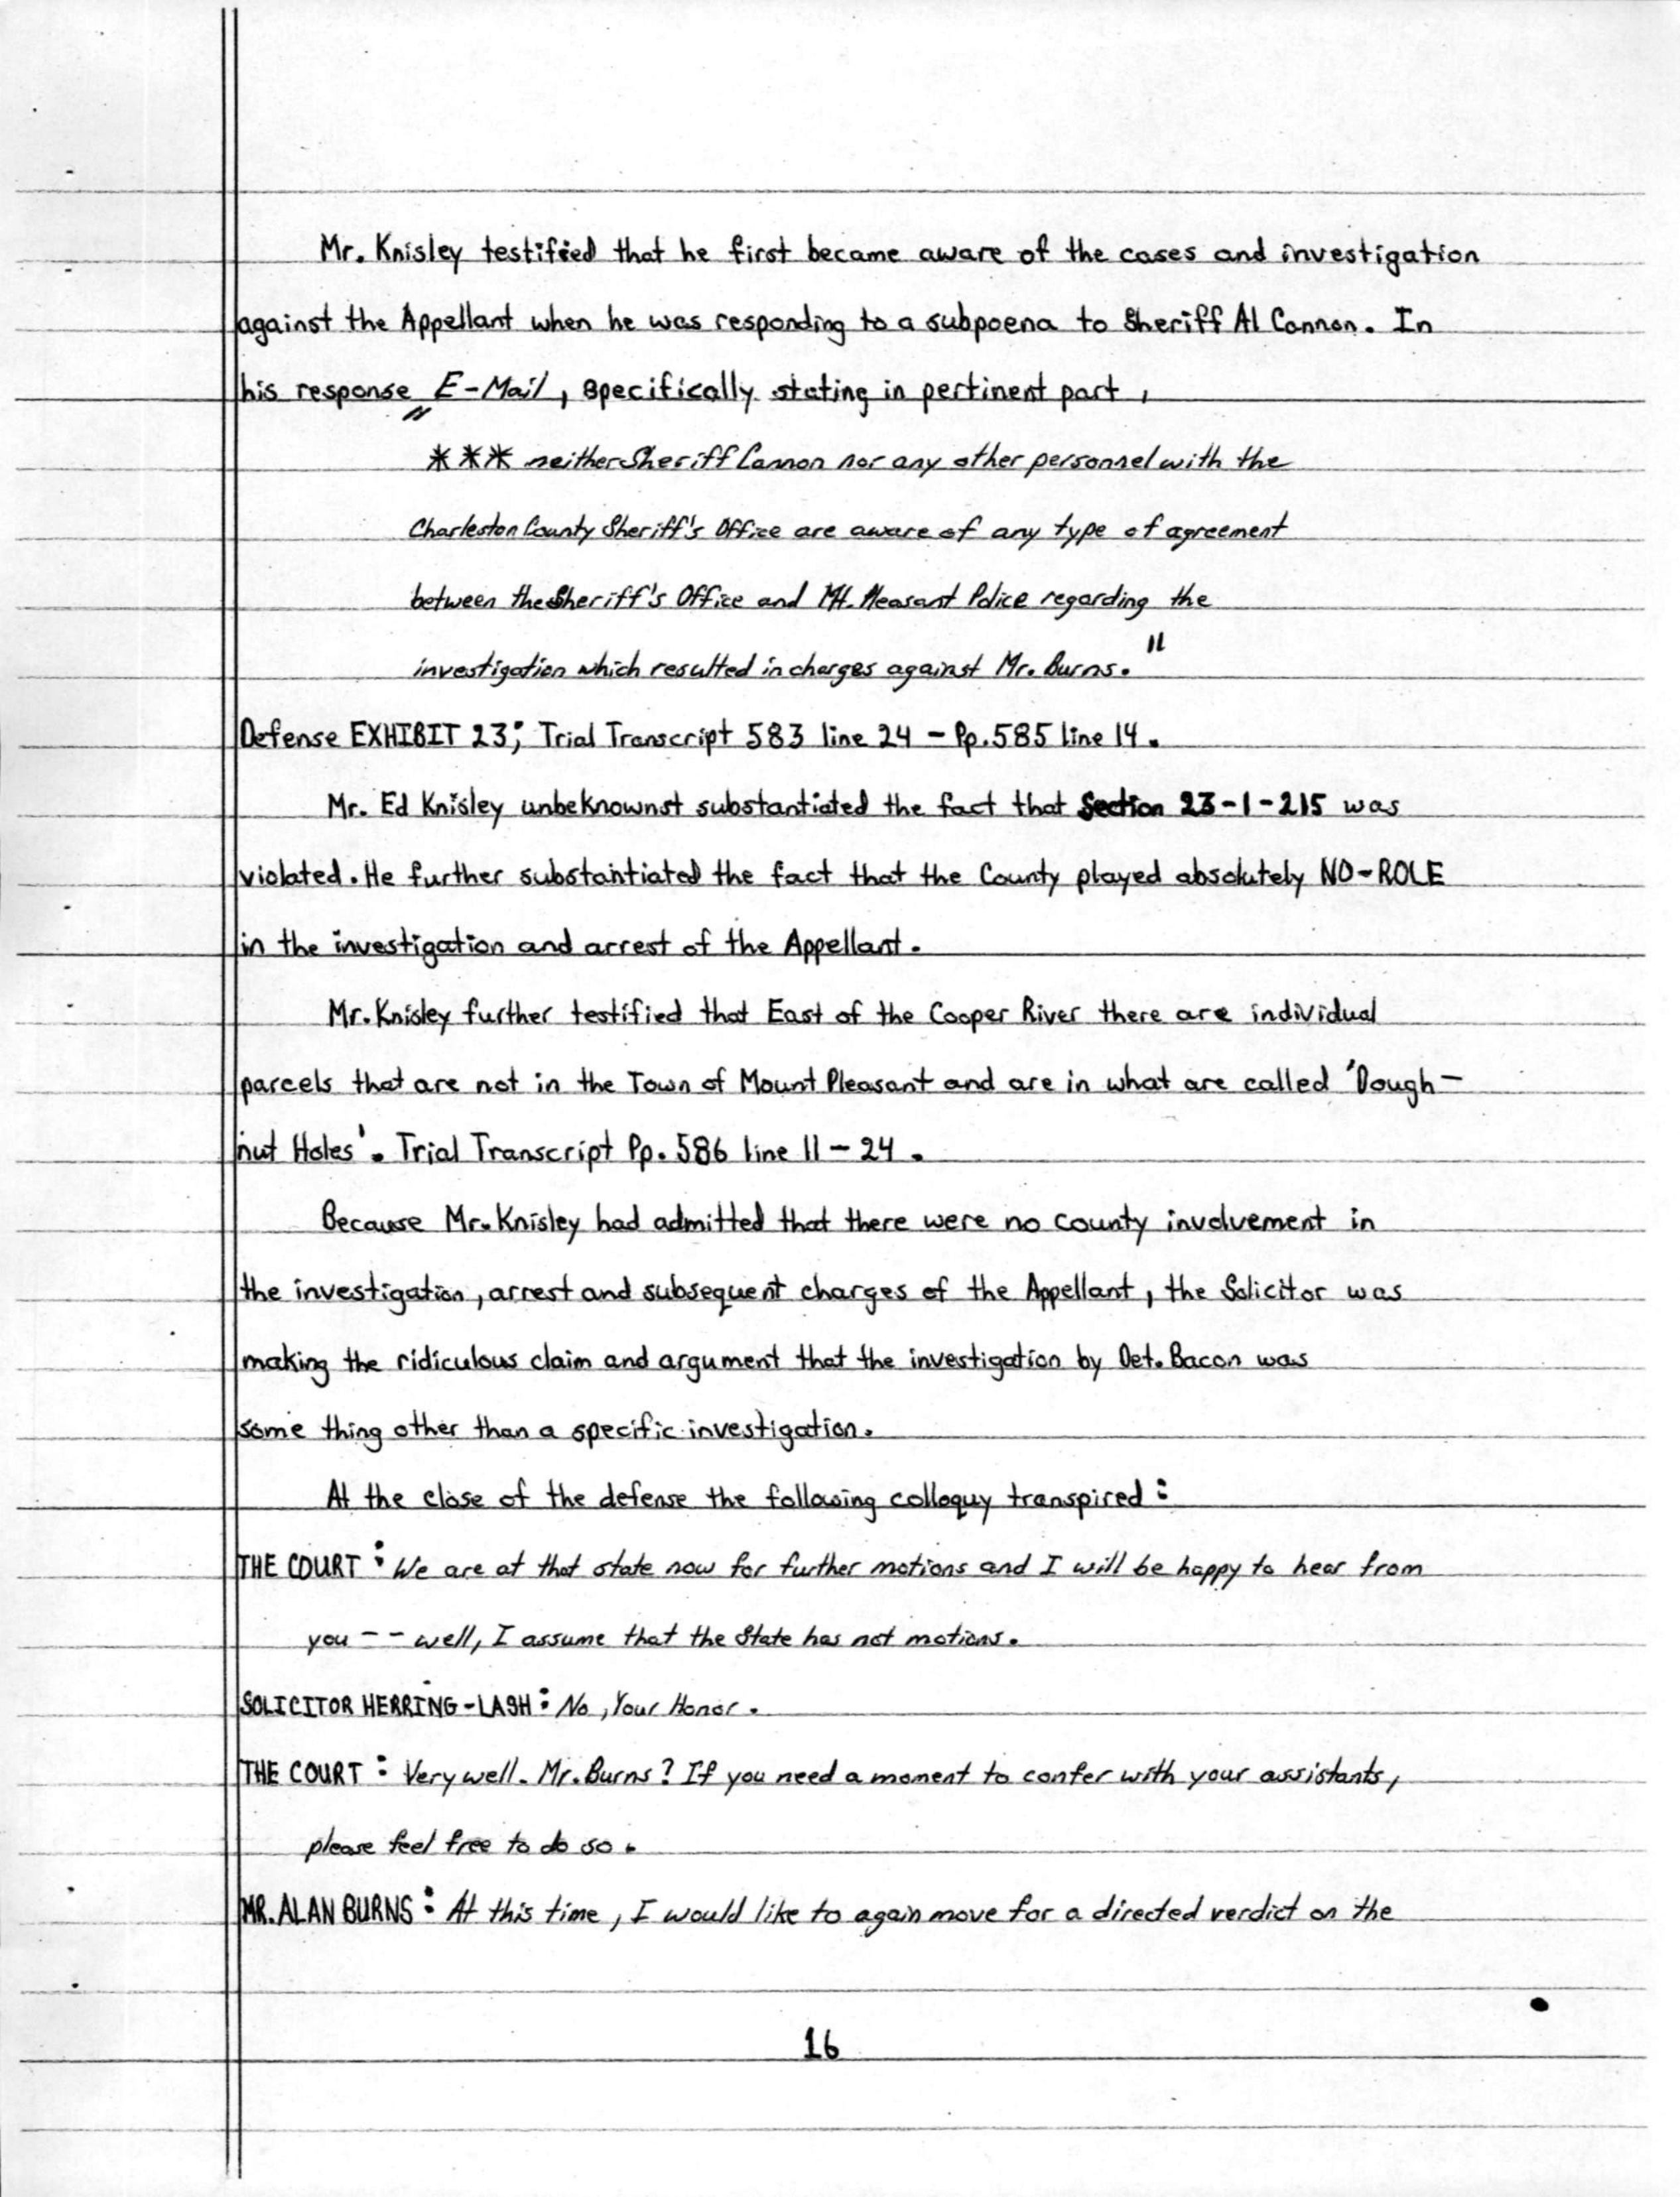 Mr. Knisley testified that he first became aware of the cases and investigation
against the Appellant when he was responding to a subpoena to Sheriff Al Cannon. In
his response E-Mail, specifically stating in pertinent part,
"*** neither Sheriff Cannon nor any other personnel with the
Charleston County Sheriff's Office are aware of any type of agreement
between the Sheriff's Office and Mt. Pleasant Police regarding the
investigation which resulted in charges against Mr. Burns."
Defense EXHIBIT 23; Trial Transcript 583 line 24 - Pp. 585 line 14.
Mr. Ed Knisley unbeknownst substantiated the fact that Section 23-1-215 was
violated. He further substantiated the fact that the County played absolutely NO-ROLE
in the investigation and arrest of the Appellant.
Mr. Knisley further testified that East of the Cooper River there are individual
parcels that are not in the Town of Mount Pleasant and are in what are called 'Dough-
nut Holes'. Trial Transcript Pp. 586 line 11-24.
Because Mr. Knisley had admitted that there were no county involvement in
the investigation, arrest and subsequent charges of the Appellant, the Solicitor was
making the ridiculous claim and argument that the investigation by Det. Bacon was
some thing other than a specific investigation.
At the close of the defense the following colloquy transpired:
THE COURT: We are at that state now for further motions and I will be happy to hear from
you -- well, I assume that the State has not motions.
SOLICITOR HERRING-LASH: No, Your Honor.
THE COURT: Very well. Mr. Burns? If you need a moment to confer with your assistants,
please feel free to do so.
MR. ALAN BURNS: At this time, I would like to again move for a directed verdict on the
16